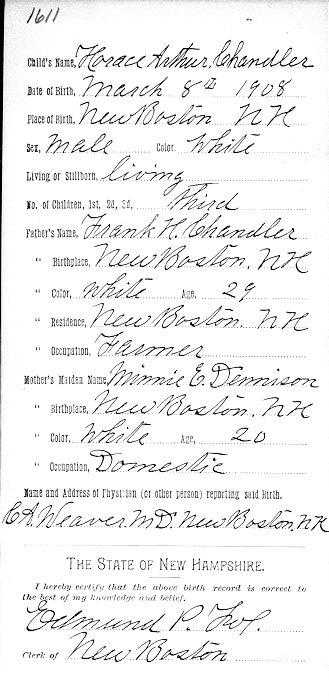 1611
Child's Name, Horace Arthur Chandler
Date of Birth, March 8th 1908
Place of Birth, New Boston NH
Sex, Male Color, White
Living or Stillborn, living
No. of Children, 1st, 2d, 3d, Third
Father's Name, Frank H. Chandler
" Birthplace, New Boston, NH
" Color, White Age, 29
" Residence, New Boston, NH
" Occupation, Farmer
Mother's Maiden Name, Minnie E. Dennison
" Birthplace, New Boston, NH
" Color, White Age, 20
" Occupation, Domestic
Name and Address of Physician (or other person) reporting said Birth.
C.A. Weaver M.D. New Boston, NH
THE STATE OF NEW HAMPSHIRE.
I hereby certify that the above birth record is correct to
the best of my knowledge and belief.
Edmund P.
Clerk of New Boston